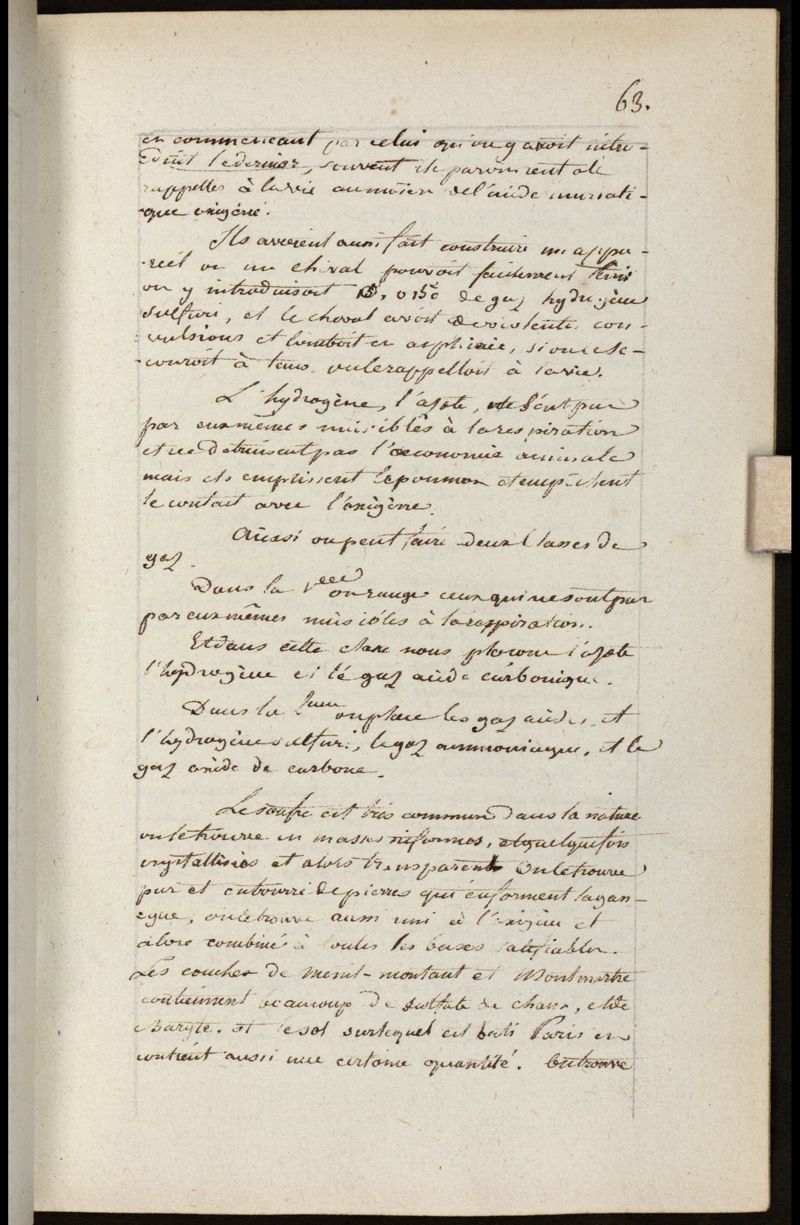 63.
en commencant par celui qu'on y avoit intro-
duit le dernier, souvent ils parvinrent a le
rappeller à la vie au moien de l'acide muriati-
-que oxigéné.
Ils avoient aussi fait construire un appa-
-reil ou un cheval pouvoit facilement tenir
on y introduisoit de gaz hydrogène
sulfuré, et le cheval avoit de violentes con-
-vulsions et tomboit en asphixie, si on le se-
-couroit à tems on le rappelloit à la vie.
L'hydrogène, l'azote, ne sont pas
par eux mêmes nuisibles à la respiration
et ne detruisent pas l'œconomie animale
mais ils emplissent le poumon et empêchent
le contact avec l'oxigène.
Aussi on peut faire deux classes de
gaz.
Dans la 1ere on range ceux qui ne sont pas
par eux mêmes nuisibles à la respiration.
Et dans cette classe nous placons l'azote
l'hydrogène et le gaz acide carbonique.
Dans la 2eme on place les gaz acides, et
l'hydrogène sulfuré, le gaz ammoniaque, et le
gaz oxide de carbone.
Le soufre est très commun dans la nature
on le trouve en masses informes, et quelquefois
crystallisées et alors transparent on le trouve
pur et entouré de pierres qui en forment la gan-
-gue, on le trouve aussi uni à l'oxigène et
alors combiné à toutes les bases salifiables.
Les couches de Menil-montant et Montmartre
contiennent beaucoup de sulfate de chaux, et de
Baryte. et le sol sur lequel est bati Paris en
contient aussi une certaine quantité. On trouve